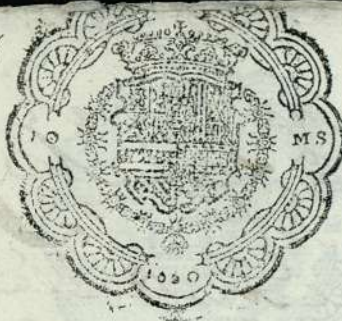 10 MS
1680